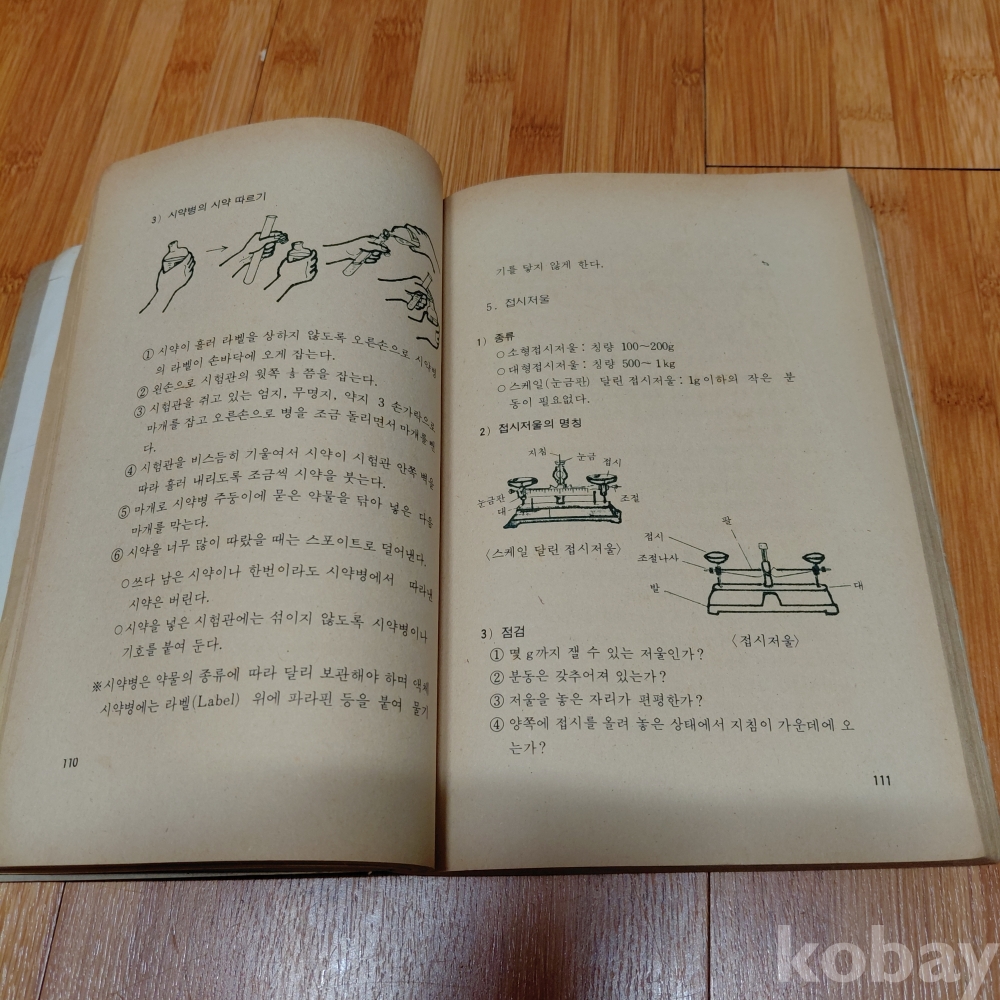 3) 시약병의 시약 따르기
① 시약이 흘러 라벨을 상하지 않도록 오른손으로 시약병
의 라벨이 손바닥에 오게 잡는다.
② 왼손으로 시험관의 윗쪽 ⅓ 쯤을 잡는다.
③ 시험관을 쥐고 있는 엄지, 무명지, 약지 3 손가락으로
마개를 잡고 오른손으로 병을 조금 돌리면서 마개를
다.
④ 시험관을 비스듬히 기울여서 시약이 시험관 안쪽 벽을
따라 흘러 내리도록 조금씩 시약을 붓는다.
⑤ 마개로 시약병 주둥이에 묻은 약물을 닦아 넣은 다음
마개를 막는다.
⑥ 시약을 너무 많이 따랐을 때는 스포이트로 덜어낸다.
○ 쓰다 남은 시약이나 한번이라도 시약병에서 따라낸
시약은 버린다.
○ 시약을 넣은 시험관에는 섞이지 않도록 시약병이나
기호를 붙여 둔다.
※ 시약병은 약물의 종류에 따라 달리 보관해야 하며 액체
시약병에는 라벨(Label) 위에 파라핀 등을 붙여 물기
110
기를 닿지 않게 한다.
5. 접시저울
1) 종류
○ 소형접시저울: 칭량 100~200g
○ 대형접시저울: 칭량 500~1kg
○ 스케일(눈금판) 달린 접시저울: 1g이하의 작은 분
동이 필요없다.
2) 접시저울의 명칭
지침
눈금
접시
눈금판
조절
대
〈스케일 달린 접시저울〉
팔
접시
조절나사
발
대
〈접시저울〉
3) 점검
① 몇 g까지 잴 수 있는 저울인가?
② 분동은 갖추어져 있는가?
③ 저울을 놓은 자리가 편평한가?
④ 양쪽에 접시를 올려 놓은 상태에서 지침이 가운데에 오
는가?
111
kobay